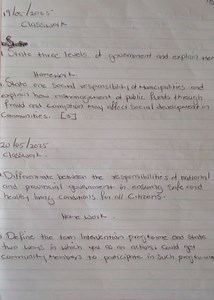 19/05/2025
Classwork
1. State three levels of government and explain them
Homework
1. State one social responsibility of municipalities and
explain how mismanagement of public funds through
fraud and corruption may affect social development in
communities. [5]
20/05/2025
Classwork.
1. Differentiate between the responsibilities of national
and provincial government in ensuring safe and
healthy living conditions for all citizens.
Home work
1. Define the term intervention programme and state
two ways in which you as an activist could get
community members to participate in such programme